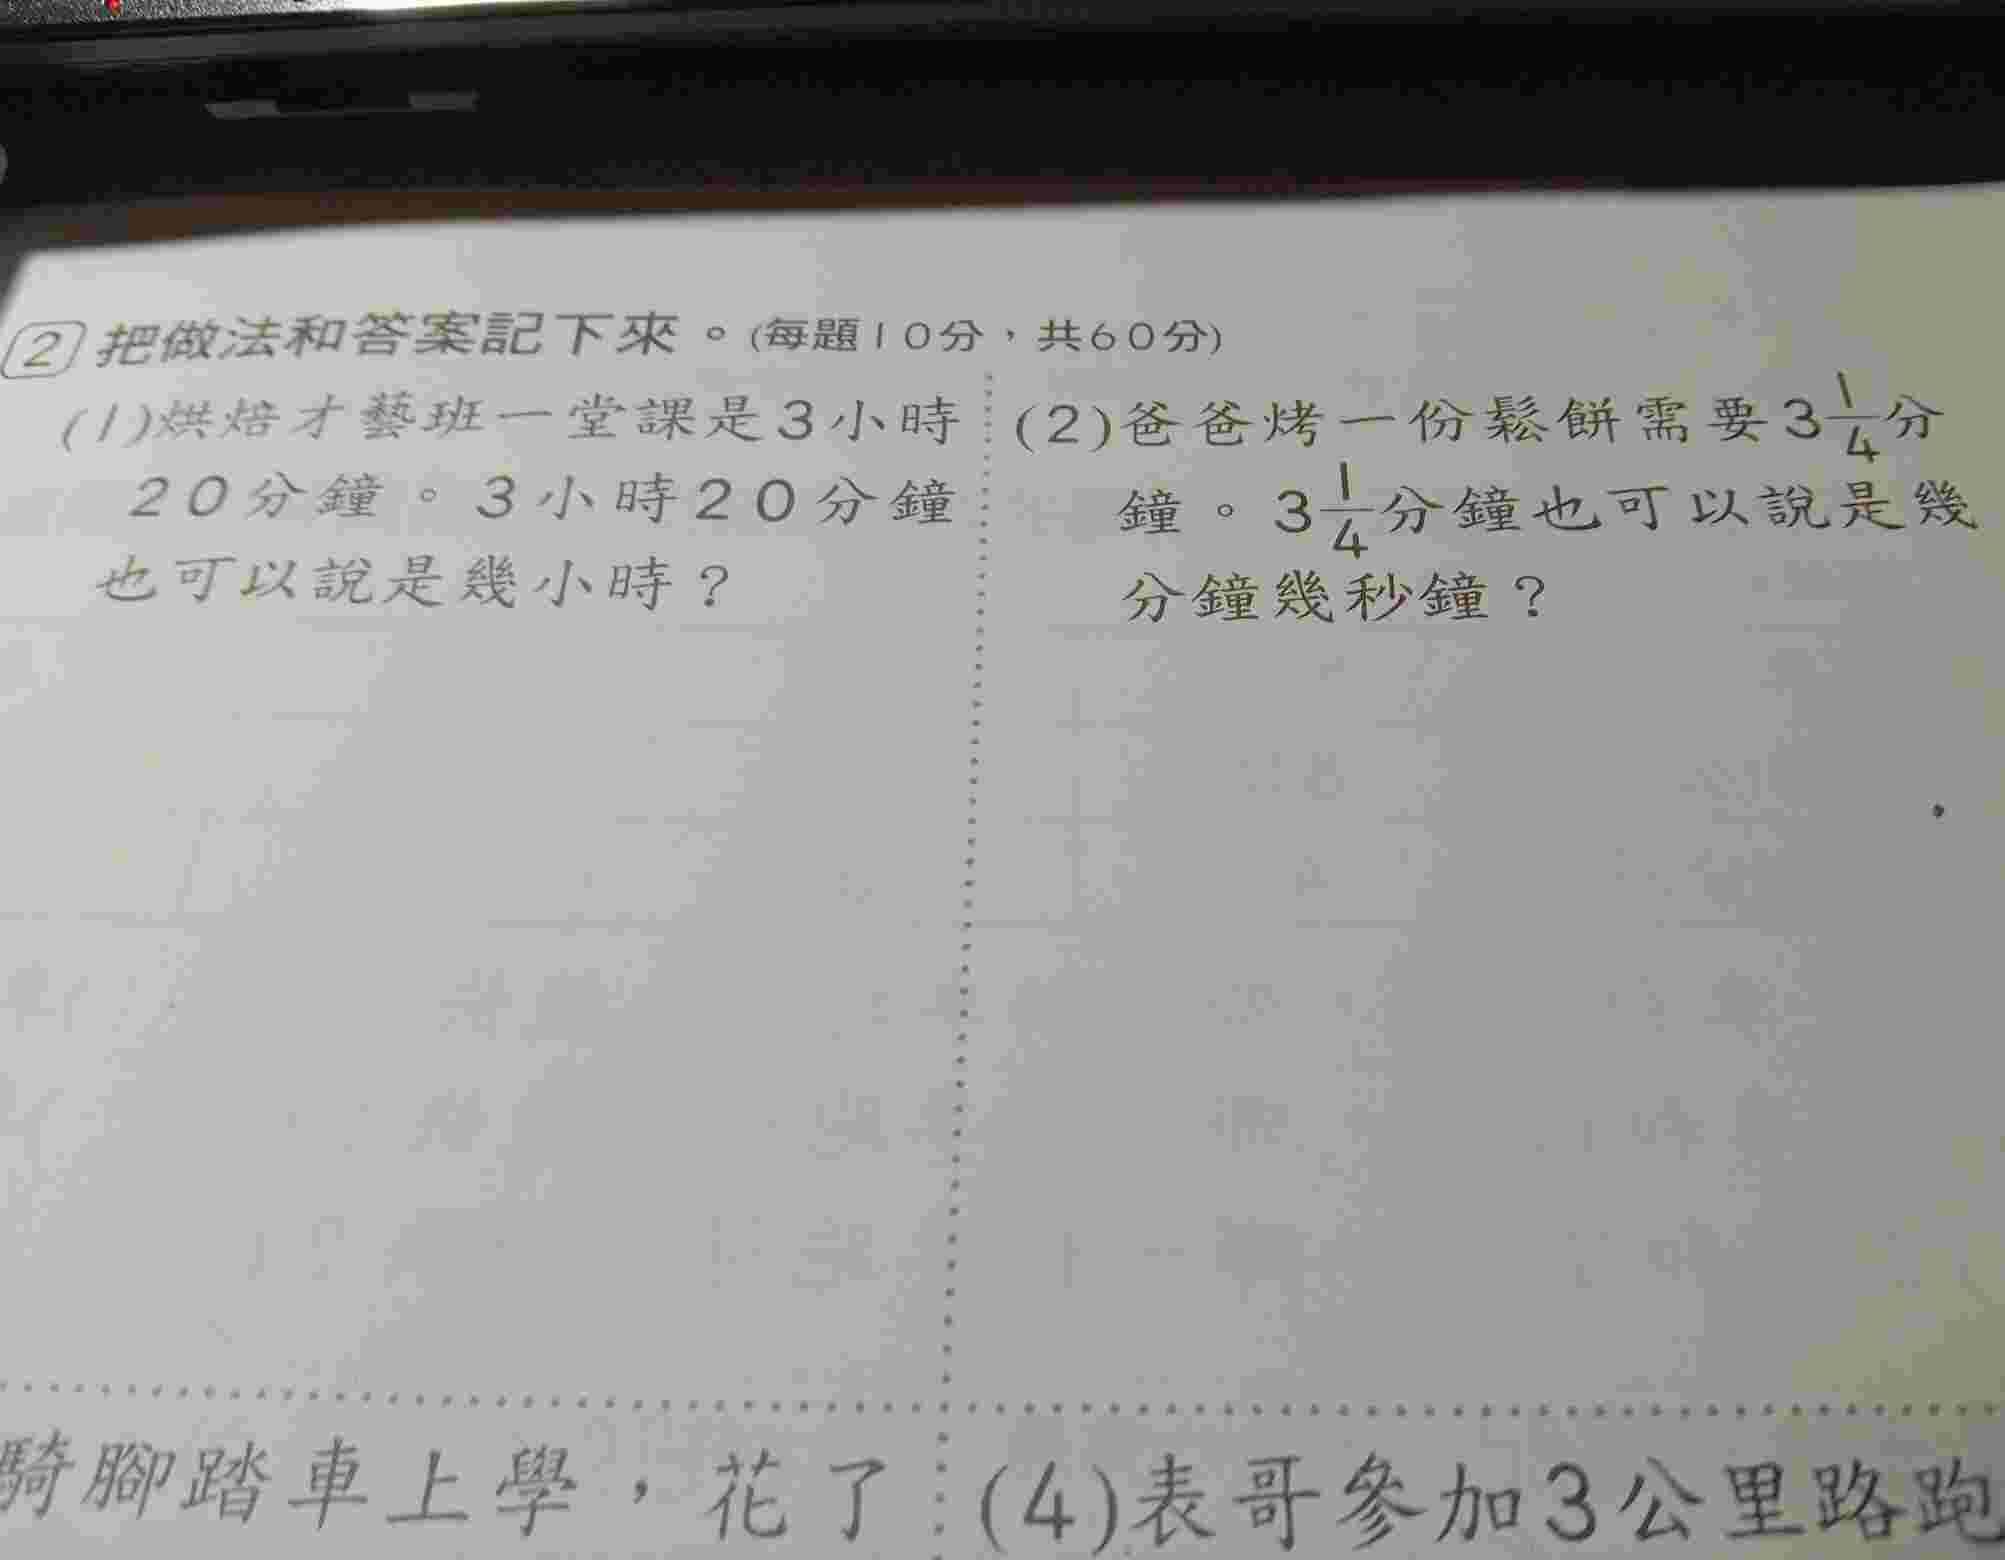 2 把做法和答案記下來。(每題10分,共60分)
(1)烘焙才藝班一堂課是3小時
20分鐘。3小時20分鐘
也可以說是幾小時?
(2)爸爸烤一份鬆餅需要3 1/4分
鐘。3 1/4分鐘也可以說是幾
分鐘幾秒鐘?
騎腳踏車上學,花了
(4)表哥參加3公里路跑